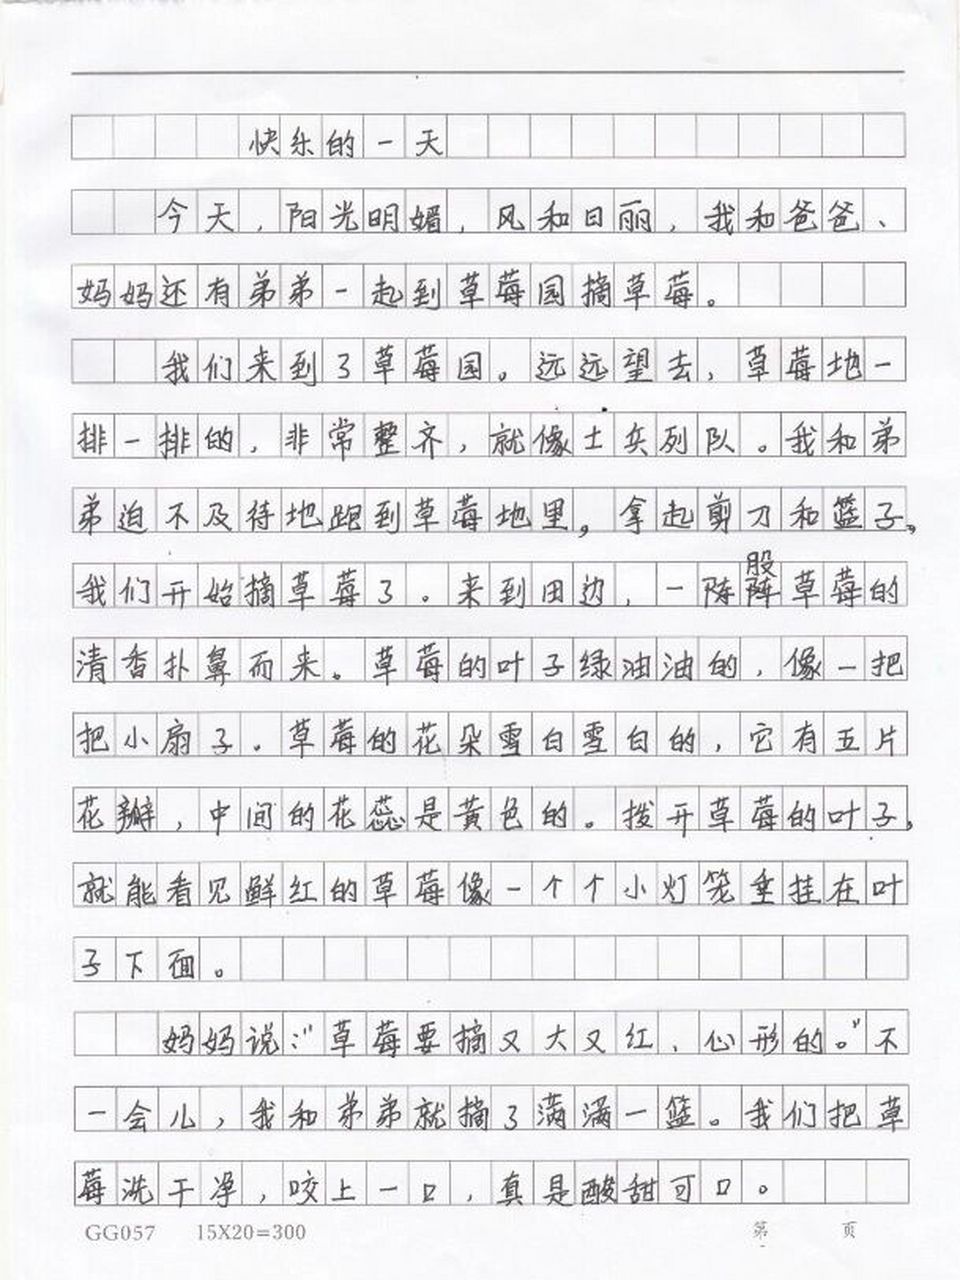 快乐的一天
今天，阳光明媚，风和日丽，我和爸爸、
妈妈还有弟弟一起到草莓园摘草莓。
我们来到了草莓园。远远望去，草莓地一
排一排的，非常整齐，就像士兵列队。我和弟
弟迫不及待地跑到草莓地里，拿起剪刀和篮子，
我们开始摘草莓了。来到田边，一阵股草莓的
清香扑鼻而来。草莓的叶子绿油油的，像一把
把小扇子。草莓的花朵雪白雪白的，它有五片
花瓣，中间的花蕊是黄色的。拨开草莓的叶子，
就能看见鲜红的草莓像一个个小灯笼垂挂在叶
子下面。
妈妈说：“草莓要摘又大又红、心形的。”不
一会儿，我和弟弟就摘了满满一篮。我们把草
莓洗干净，咬上一口，真是酸甜可口。
GG057 15X20=300 第 页